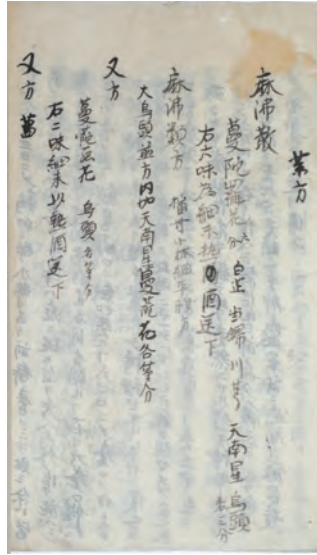 業方
麻沸散
蔓陀羅花 分六 白芷 当帰 川芎 天南星 烏頭 各二分
右六味為細末熱酒送下
麻沸散方
大烏頭 並方内加天南星蔓荒花各等分
又方
蔓陀羅花 烏頭 各等分
右二味細末以熱酒送下
又方